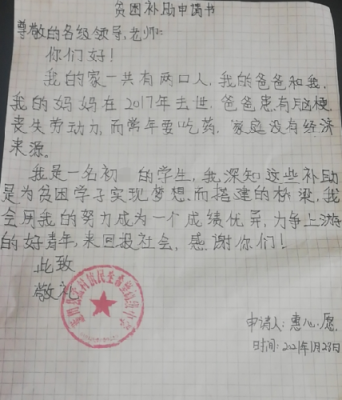 贫困补助申请书
尊敬的各级领导,老师:
你们好!
我的家一共有两口人,我的爸爸和我,
我的妈妈在2017年去世,爸爸患有脑梗
丧失劳动力,而常年要吃药,家庭没有经济
来源。
我是一名初 的学生,我深知这些补助
是为贫困学子实现梦想而搭建的桥梁,我
会用我的努力成为一个成绩优异,力争上游
的好青年,来回报社会,感谢你们!
此致
敬礼
申请人:惠心愿
时间:2021年1月23日